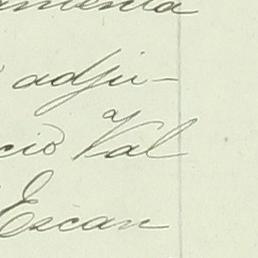 amenta
adju-
ció Val
Escan